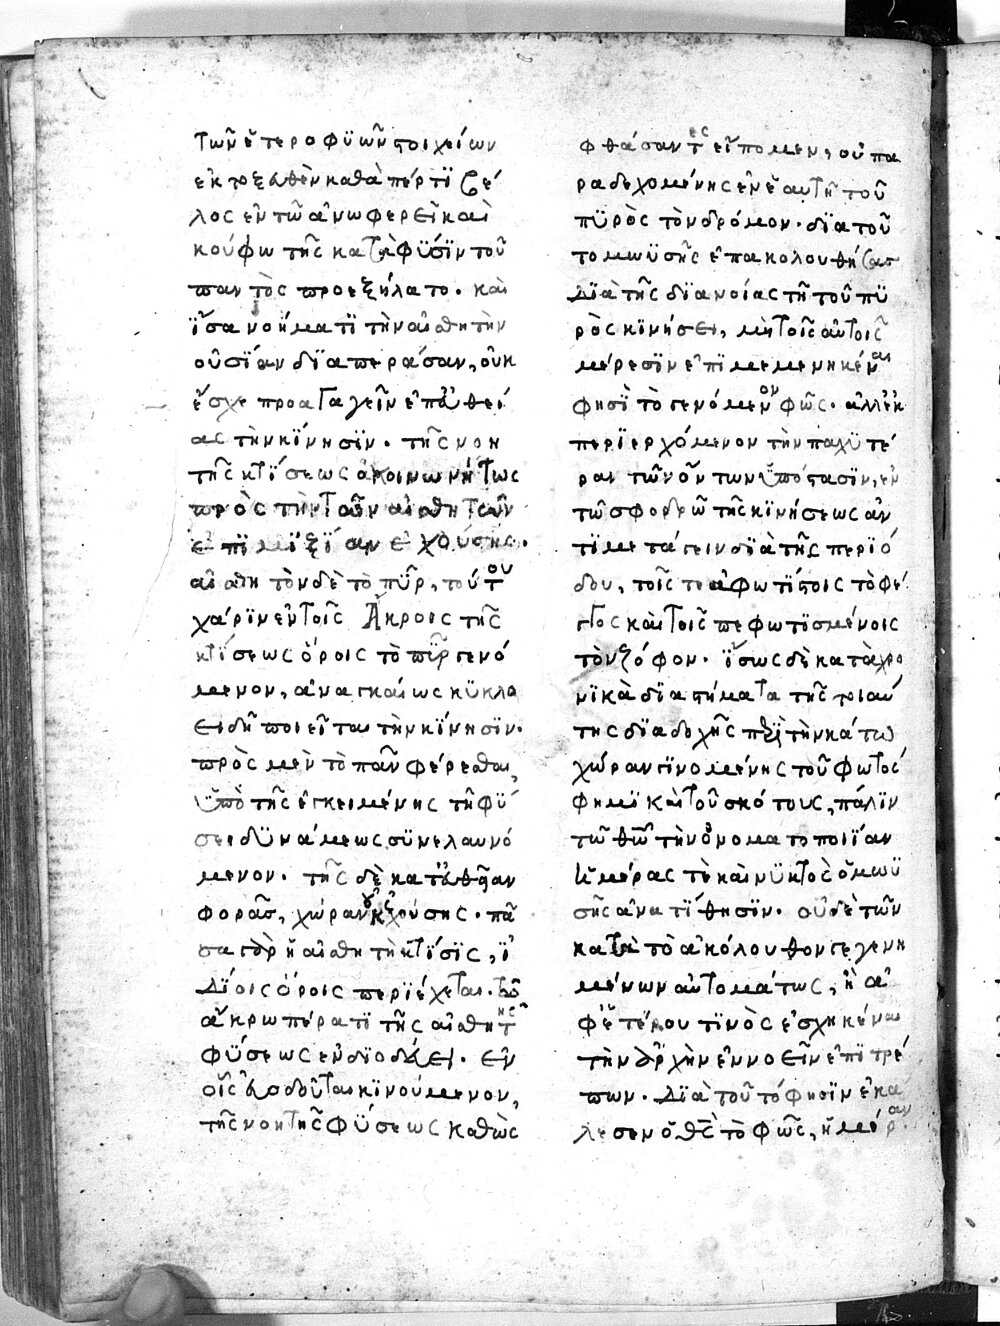 τῶν ἑτεροφϋῶν στοιχείων
ἐκτοξευθὲν καθάπέρ τϊ βέ
λος ἐν τῶ ἀνωφερεῖ καὶ
κούφω τῆς κατὰ φϋσϊν τοῦ
παντὸς προεξήλατο. καὶ
ἴσα νοήματϊ τὴν αἰσθητὴν
οὐσϊαν δϊαπεράσαν, οὐκ
ἔσχε προαγαγεῖν ἐπ' εὐθεί
ας τὴν κίνησϊν. τῆς νοη
τῆς κτΐσεως ἀκοινωνήτως
πρὸς τὴν τῶν αἰσθητῶν
ἐπϊμϊξϊαν ἐχούσης.
αἰσθητὸν δὲ τὸ πῦρ, τούτου
χάρϊν ἐν τοῖς ἄκροις τῆς
κτίσεως ὅροις τὸ πῦρ γενό
μενον, ἀναγκαίως κϋκλο
ειδῆ ποιεῖται τὴν κίνησϊν.
πρὸς μὲν τὸ πᾶν φέρεσθαι,
ὑπὸ τῆς ἐγκειμένης τῆ φϋ
σει δϋνάμεως συνελαυνό
μενον. τῆς δὲ κατ' εὐθεῖαν
φορᾶς, χώραν οὐκ ἐχούσης. πᾶ
σα γὰρ ἡ αἰσθητὴ κτίσϊς, ϊ
δΐοις ὅροις περϊέχεται. τῶ
ἄκρω πέρατϊ τῆς αἰσθητῆς
φύσεως ἐνδϊοδεύει. ἐν
οἷς εὐοδοῦται κϊνούμενον,
τῆς νοητῆς φύσεως καθὼς
φθάσαντες εἴπομεν, οὐ πα
ραδεχομένης ἐν ἑαυτῆ τοῦ
πϋρὸς τὸν δρόμον. δϊα τοῦ
το μωϋσῆς ἐπακολουθήσας
δϊα τῆς δϊανοίας τῆ τοῦ πϋ
ρὸς κϊνήσει, μὴ τοῖς αὐτοῖς
μέρεσϊν ἐπϊμεμενηκέναι
φησϊ τὸ γενόμενον φῶς. ἀλλ' ἐκ
περϊερχόμενον τὴν παχϋτέ
ραν τῶν ὄντων ὑπόστασϊν, ἐν
τῶ σφοδρῶ τῆς κϊνήσεως ἀν
τϊμετάγειν δϊὰ τῆς περϊό
δου, τοῖς τε ἀφωτΐστοις τὸ φέ
γγος καὶ τοῖς πεφωτϊσμένοις
τὸν ζόφον. ἴσως δὲ κατὰ χρο
νϊκὰ δϊαστήματα τῆς τοιαύ
της δϊαδοχῆς περὶ τὴν κάτω
χώραν γϊνομένης τοῦ φωτός
φημϊ καὶ τοῦ σκότους, πάλϊν
τῶ θῶ τὴν ὀνοματοποιΐαν
ἡμέρας τὲ καὶ νϋκτὸς ὁ μωϋ
σῆς ἀνατϊθησϊν. οὐδὲ τῶν
κατὰ τὸ ἀκόλουθον γεγενη
μένων αὐτομάτως, ἢ ἀ
φ' ἑτέρου τϊνὸς ἐσχηκέναι
τὴν ἀρχὴν ἐννοεῖν ἐπϊτρέ
πων. δϊὰ τοῦτό φησϊν ἐκά
λεσεν ὁ θς τὸ φῶς, ἡμέραν